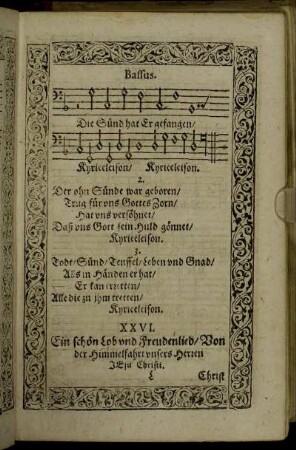 Bassus.
Die Sünd hat Er gefangen/
Kyrieeleison/ Kyrieeleison.
2.
Der ohn Sünde war geboren/
Trug für vns Gottes Zorn/
Hat vns versöhnet/
Daß vns Gott sein Huld gönnet/
Kyrieeleison.
3.
Todt/Sünd/Teuffel/Leben vnd Gnad/
Alls in Händen er hat/
Er kan erretten/
Alle die zu jhm tretten/
Kyrieeleison.
XXVI.
Ein schön Lob vnd Freudenlied/Von
der Himmelfahrt vnsers Herren
JEsu Christi.
Christ